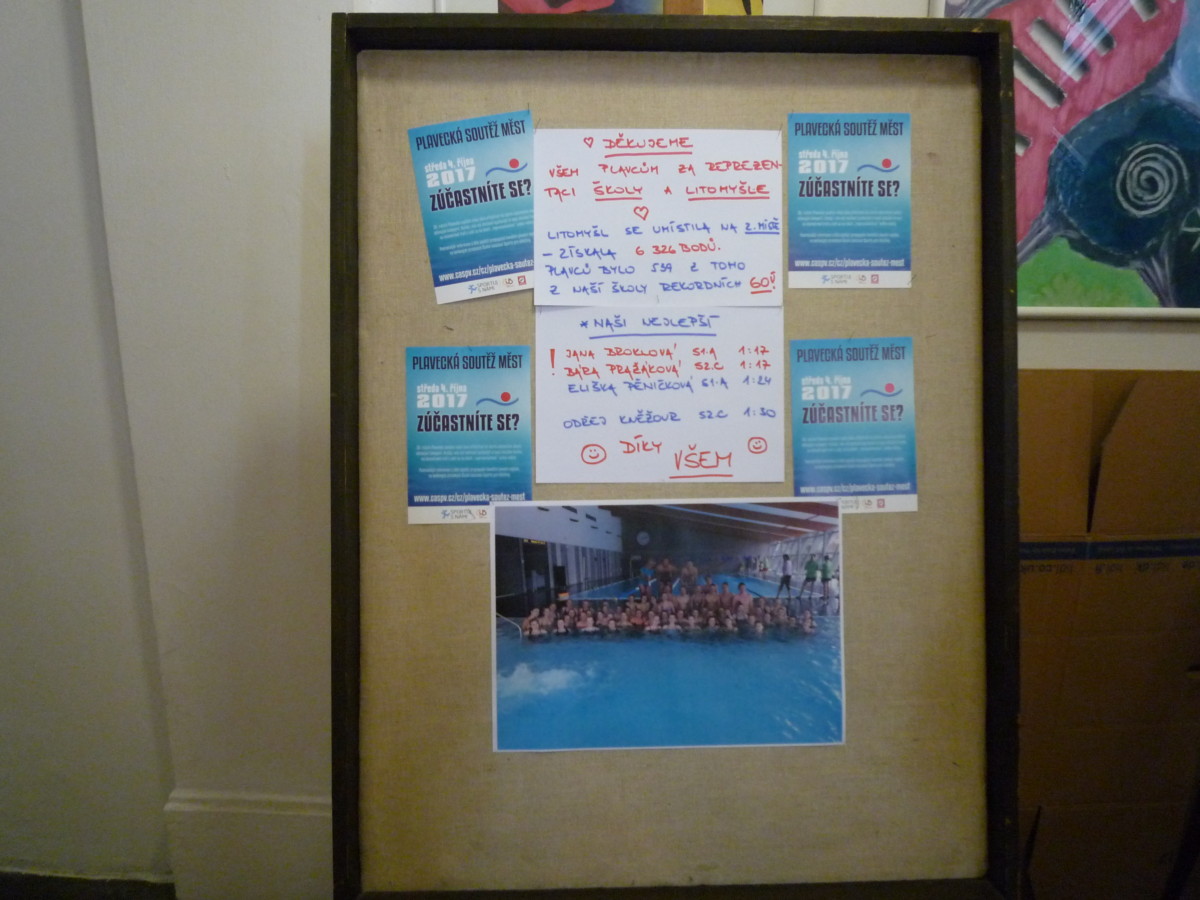 PLAVECKÁ SOUTĚŽ MĚST
středa 4. října
2017
ZÚČASTNÍTE SE?
www.cospv.cz/cz/plavecka-soutez
♡ DĚKUJEME
VŠEM PLAVCŮM ZA REPREZEN-
TACI ŠKOLY A LITOMYŠLE
♡
LITOMYŠL SE UMÍSTILA NA 2. MÍSTĚ
– ZÍSKALA 6 326 BODŮ.
PLAVCŮ BYLO 539 Z TOHO
Z NAŠÍ ŠKOLY REKORDNÍCH 60!
PLAVECKÁ SOUTĚŽ MĚST
středa 4. října
2017
ZÚČASTNÍTE SE?
www.cospv.cz/cz/plavecka-soutez-mest
PLAVECKÁ SOUTĚŽ MĚST
středa 4. října
2017
ZÚČASTNÍTE SE?
www.cospv.cz/cz/plavecka-soutez-mest
* NAŠI NEJLEPŠÍ
! JANA BROKLOVÁ S1.A 1:17
BÁRA PRAŽÁKOVÁ S2.C 1:17
ELIŠKA PĚNIČKOVÁ S1.A 1:24
ODŘEJ KNĚŽOUR S2.C 1:30
DÍKY
VŠEM
PLAVECKÁ SOUTĚŽ MĚST
středa 4. října
2017
ZÚČASTNÍTE SE?
www.cospv.cz/cz/plavecka-soutez-mest